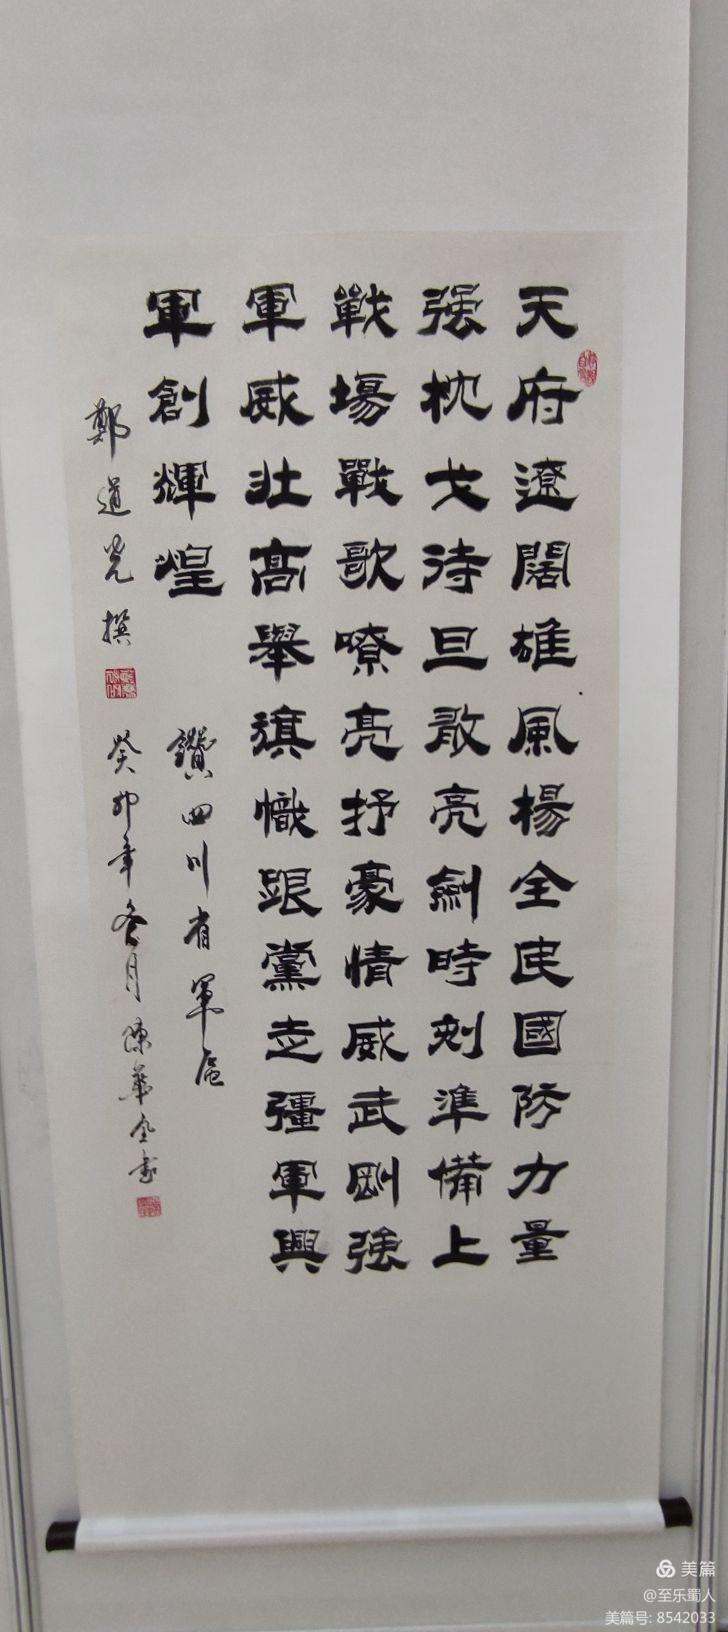 天府遼闊雄風楊全民國防力量
强枕戈待旦敢亮劍時刻準備上
戰場戰歌嘹亮抒豪情威武剛強
軍威壯高舉旗幟跟黨走彊軍興
軍創輝煌
讚四川省軍區
鄭道光撰
癸卯年冬月陳華全書
美篇
@至乐蜀人
美篇号: 8542033